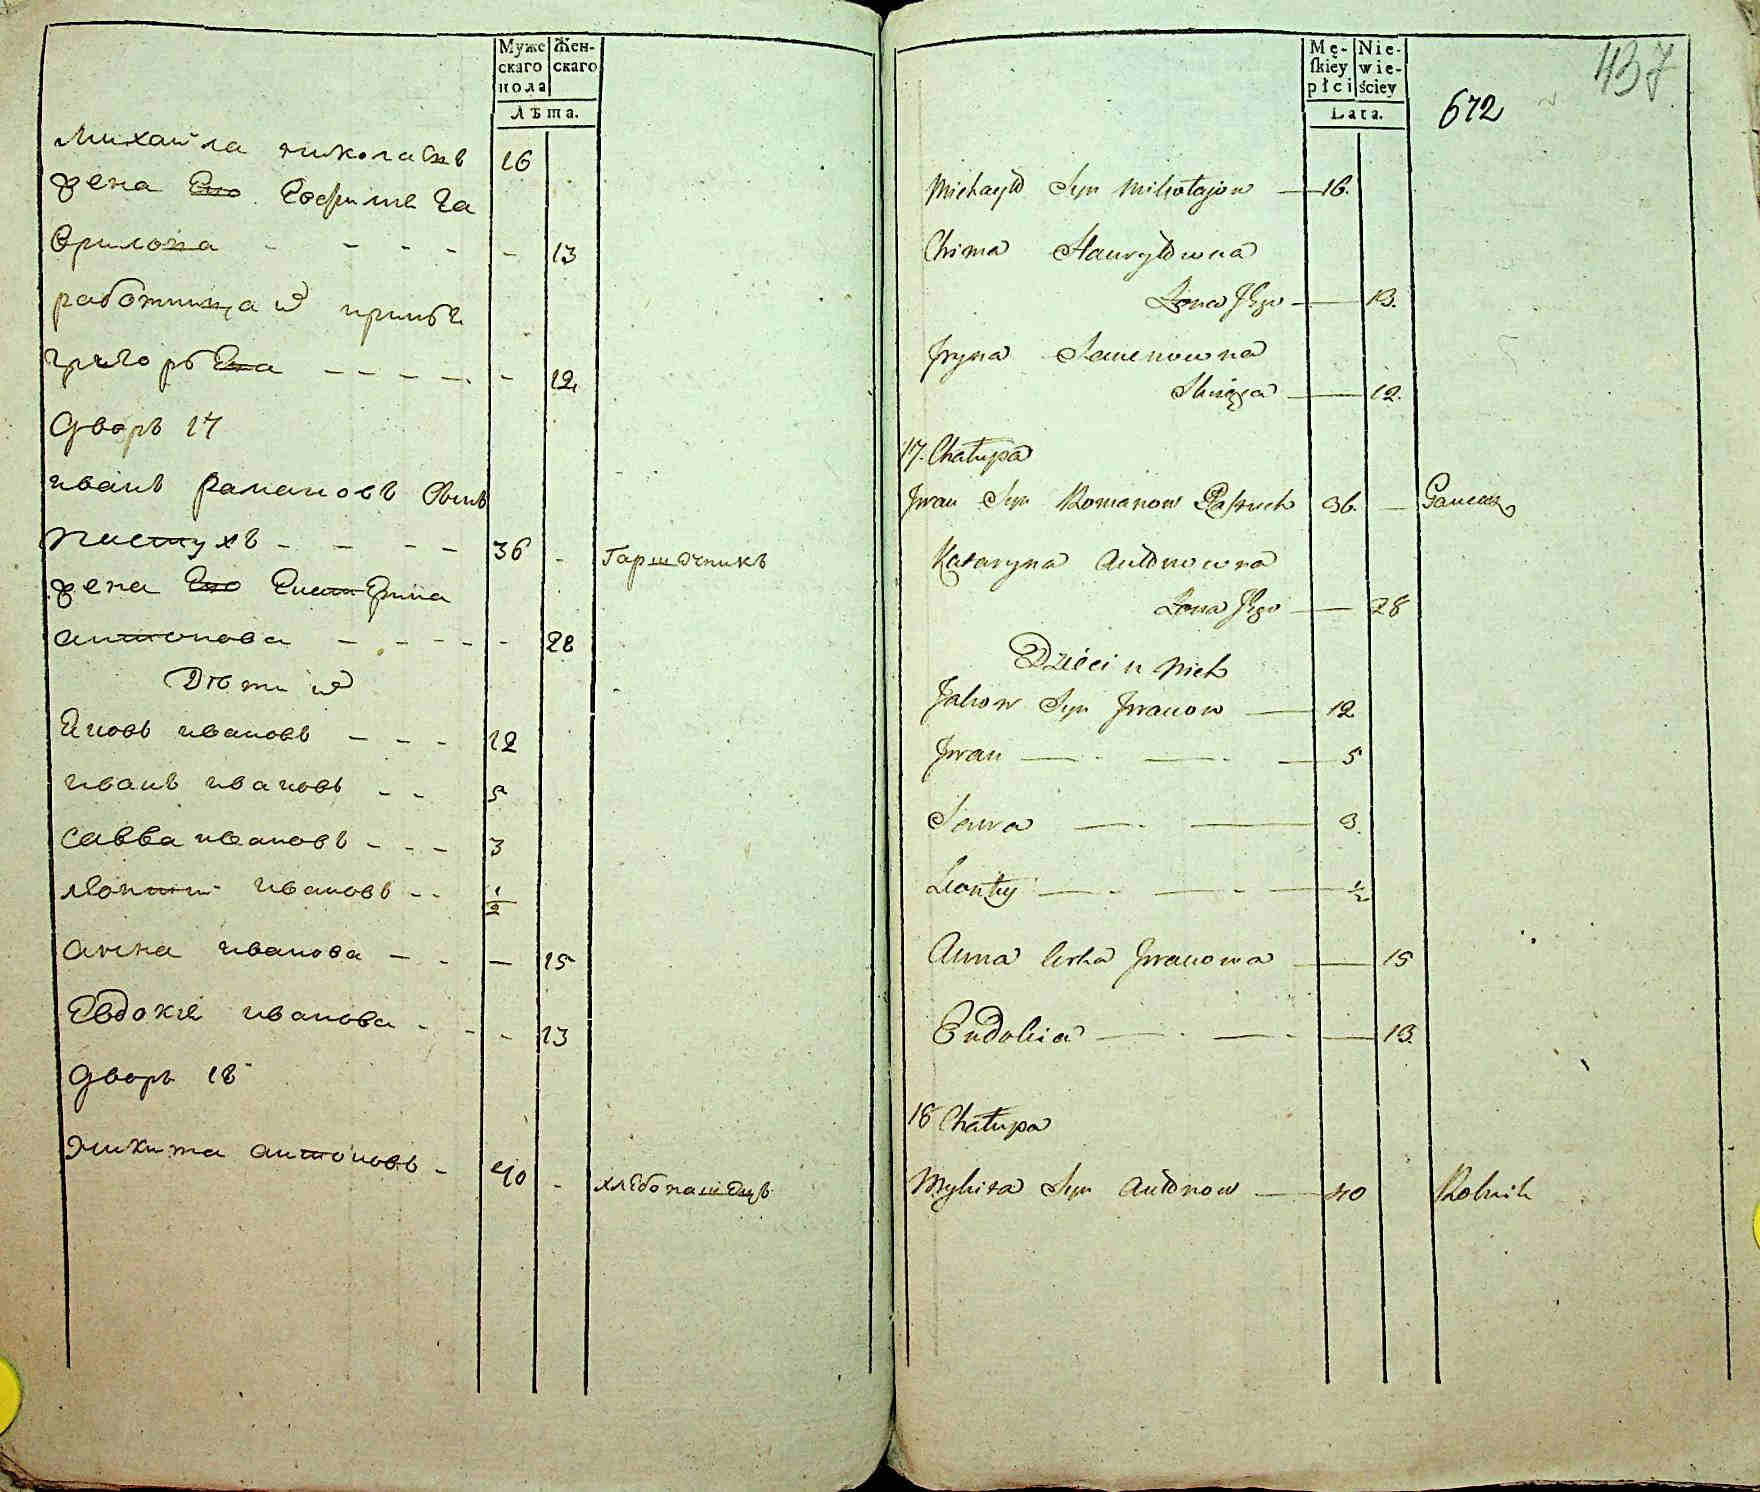 Муже
скаго
пола
Жен-
скаго
Лѣта.
Михаила николаевъ 16
жена Его Ефиме Га
врилова - - - - - 13
работница ихъ ирина
григорьева - - - - - 12
Дворъ 17
иванъ рамановъ сынъ
пастухъ - - - - 36 - Гаршечникъ
жена Его Екатерина
антонова - - - - - 28
Дѣти ихъ
Яковъ ивановъ - - - 12
иванъ ивановъ - - 5
савва ивановъ - - - 3
леонтий ивановъ - - 1/2
анна иванова - - - 15
Евдокия иванова - - - 13
дворъ 18
никита антоновъ - 40 - хлебопашецъ
Mę-
skiey
płci
Nie-
wie-
ściey
Lata.
672
437
Michayło Syn Mikołajow — 16.
Chima Hauryłowna
Żona Jego — 13.
Jryna
Służąca — 12.
17. Chałupa
Jwan Syn Romanow Pastuch 36. — Garncarz
Kataryna Antonowna
Żona Jego — 28
Dzieci u nich
Jakow Syn Jwanow — 12
Jwan — - — - — 5
Sawa — - — 3.
Leonty — - — - — 1/2
Anna Corka Jwanowa — 15
Eudokia — - — - — 13.
18 Chałupa
Mykita Syn Antonow — 40 Rolnik